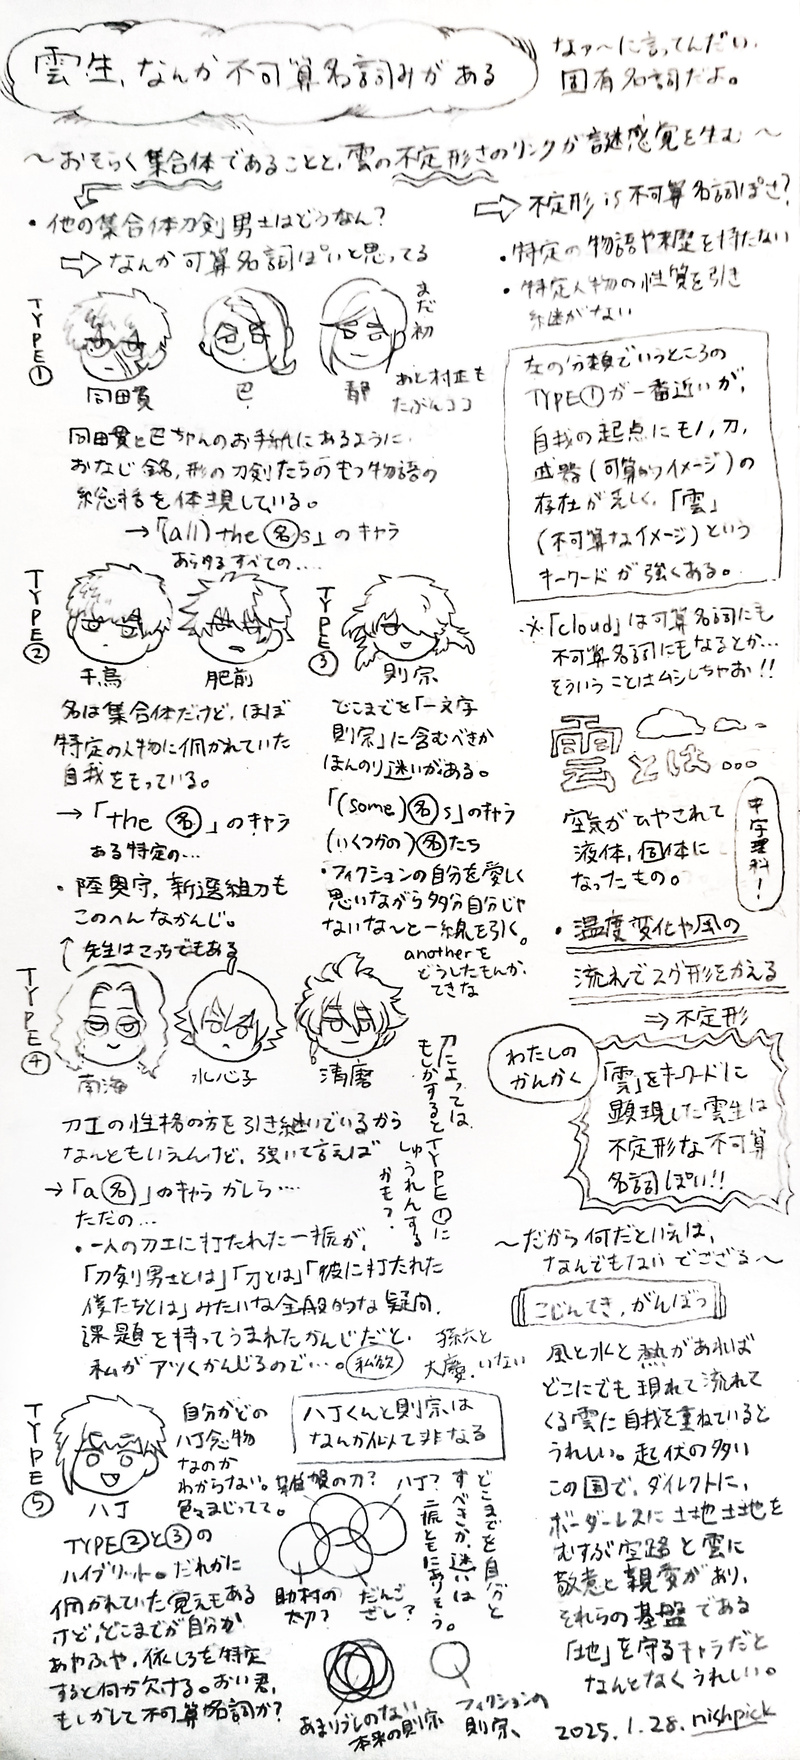 雲生、なんか不可算名詞みがある
なァ〜に言ってんだい。
固有名詞だよ。
〜おそらく集合体であることと、雲の不定形さのリンクが謎感覚を生む〜
・他の集合体刀剣男士はどうなん?
⇨なんか可算名詞ぽいと思ってる
TYPE①
同田貫
巴
まだ初
あと村正も
たぶんココ
同田貫と巴ちゃんのお手紙にあるように、
おなじ銘、形の刀剣たちのもつ物語の
総括を体現している。
→「(all) the 名s」のキャラ
あらゆるすべての....
TYPE②
千鳥
肥前
名は集合体だけど、ほぼ
特定の人物に佩かれていた
自我をもっている。
→「the 名」のキャラ
ある特定の...
・陸奥守、新選組刀も
このへんなかんじ。
↑先生はこっちでもある
TYPE③
則宗
どこまでを「一文字
則宗」に含むべきか
ほんのり迷いがある。
「(some)名s」のキャラ
(いくつかの)名たち
・フィクションの自分を愛しく
思いながら多分自分じゃ
ないな〜と一線を引く。
anotherを
どうしたもんか、
てきな
TYPE④
南海
水心子
清麿
刀工の性格の方を引き継いでいるから
なんともいえんけど、強いて言えば
→「a 名」のキャラかしら....
ただの...
・一人の刀工に打たれた一振が、
「刀剣男士とは」「刀とは」「彼に打たれた
僕たちとは」みたいな全般的な疑問、
課題を持ってうまれたかんじだと、
私がアツくかんじるので...。私欲
刀によっては、
もしかするとTYPE①に
しゅうれんする
かも?
孫六と
大慶、いない
TYPE⑤
八丁
自分がどの
八丁念物
なのか
わからない。
色々まじってて。
TYPE②と③の
ハイブリット。だれかに
佩かれていた覚えもある
けど、どこまでが自分か
あやふや、依しろを特定
すると何か欠ける。おい君、
もしかして不可算名詞か?
八丁くんと則宗は
なんか似て非なる
雑賀の刀?
八丁?
助村の
太刀?
だんご
ざし?
どこまでを自分と
すべきか、迷いは
二振ともにありそう。
あまりブレのない
本来の則宗
フィクションの
則宗
⇨不定形 is 不可算名詞ぽさ?
・特定の物語や来歴を持たない
・特定人物の性質を引き
継がない
左の分類でいうところの
TYPE①が一番近いが、
自我の起点にモノ、刀、
武器(可算的イメージ)の
存在が乏しく、「雲」
(不可算なイメージ)という
キーワードが強くある。
※「cloud」は可算名詞にも
不可算名詞にもなるとか...
そういうことはムシしちゃお!!
雲とは...
中学理科!
空気がひやされて
液体、固体に
なったもの。
・温度変化や風の
流れでスグ形をかえる
⇒不定形
わたしの
かんかく
「雲」をキーワードに
顕現した雲生は
不定形な不可算
名詞ぽい!!
〜だから何だといえば、
なんでもないでござる〜
こじんてき、がんぼう
風と水と熱があれば
どこにでも現れて流れて
くる雲に自我を重ねていると
うれしい。起伏の多い
この国で、ダイレクトに、
ボーダーレスに土地土地を
むすぶ空路と雲に
敬意と親愛があり、
それらの基盤である
「地」を守るキャラだと
なんとなくうれしい。
2025.1.28. nishpick